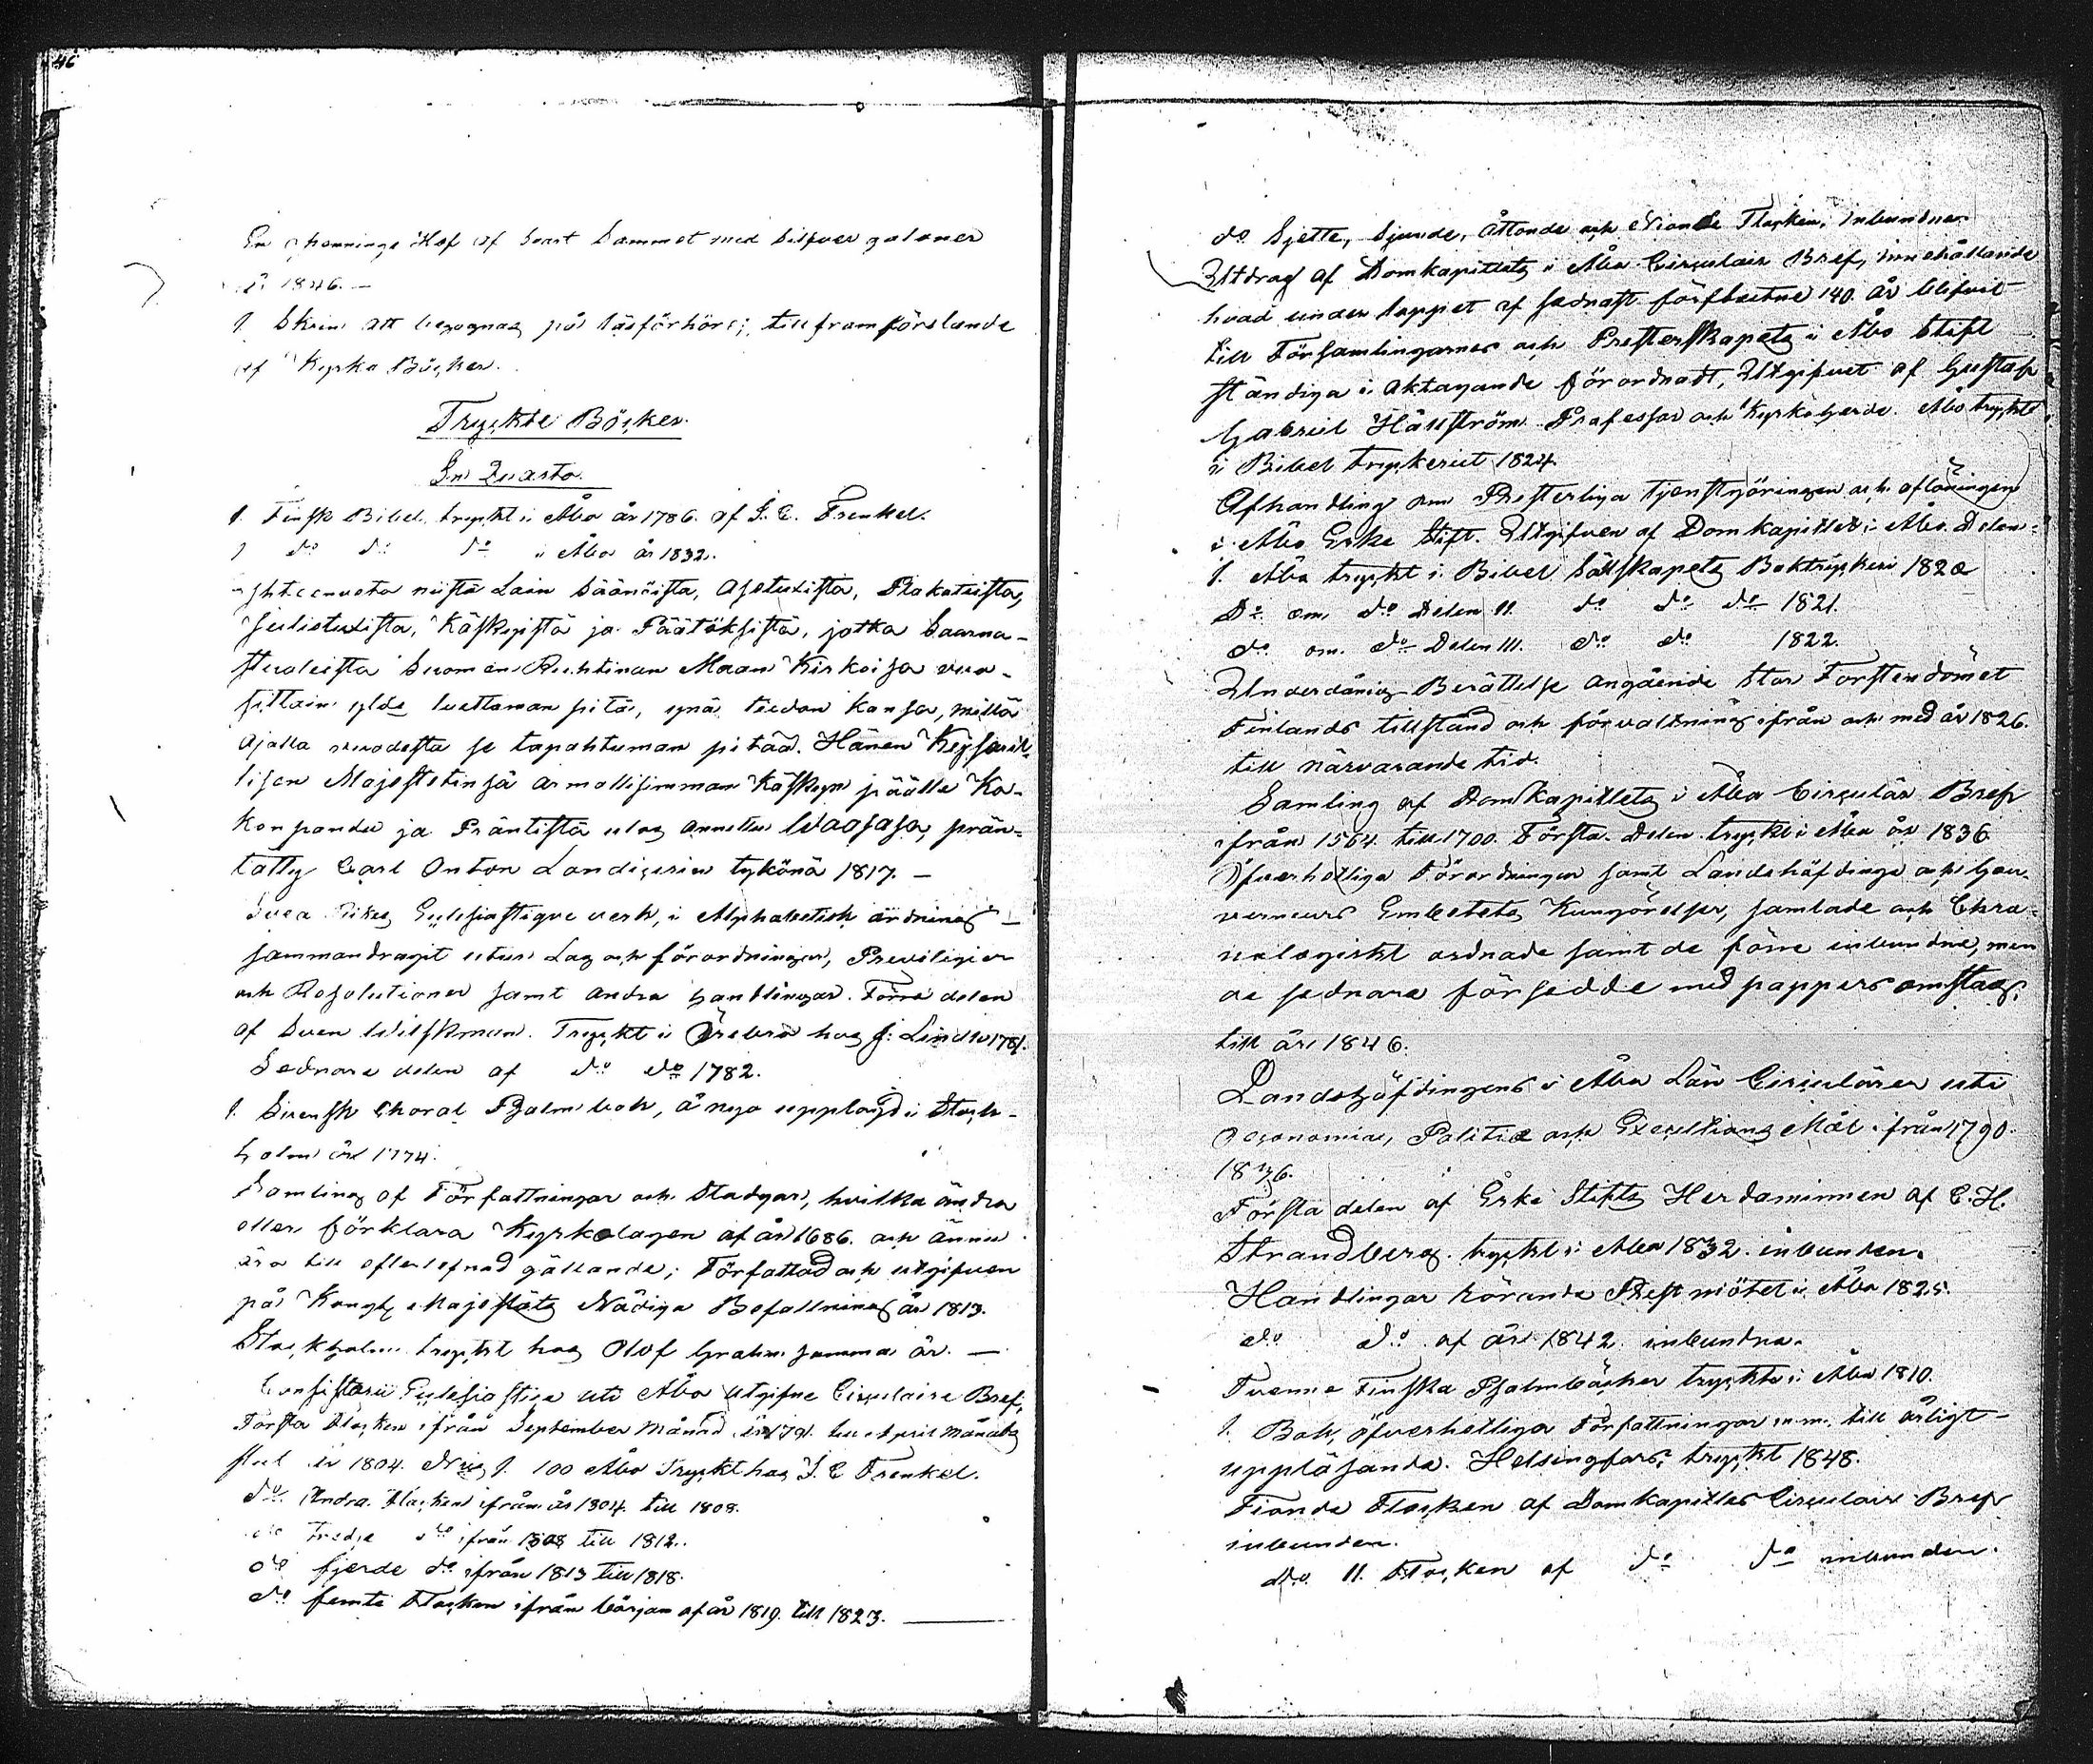 46
En pennings Håf af svart Sammet med silfver galoner
år 1846.
1. Skrin att begagnas på läsförhör; till framförslande
af Kyrko Böcker.
Tryckte Böcker.
In Quarto.
1. Finsk Bibel, tryckt i Åbo år 1786. af J. C. Frenkel.
1 do do do i Åbo år 1832.
niistä Lain Säänöistä, Asetuxista, Plakateista,
Julistuxista, Käskyistä ja Päätöksistä, jotka Saarna-
stuoleista Suomen Ruhtinan Maan Kirkoisa vuo-
sittain ylös luettaman pitä, ynä tiedon kansa, millä
ajalla vuodesta se tapahtuman pitää. Hänen Keisaril-
lisen Majestetinsä armollisimman Käskyn päälle Ko-
konpandu ja Präntistä ulos annettu Waasasa, prän-
tätty Carl Anton Londicerin tykönä 1817. –
Svea Rikes Ecclesiastique verk, i Alphabetisk ordning –
sammandragit utur Lag och förordningar, Previligier
och Resolutioner samt andra handlingar. Förra delen
af Sven Wilskman. Tryckt i Örebro hos J: Lindh 1781.
Sednare delen af do do 1782.
1. Svensk Choral Psalmbok, å nyo upplagd i Stock-
holm år 1774.
Samling af Författningar och Stadgar, hvilka ändra
eller förklara Kyrkolagen af år 1686. och ännu
äro till efterlefnad gällande; Författad och utgifven
på Kongl. Majestäts Nådiga Befallning år 1813.
Stockholm tryckt hos Olof Grahn samma år. –
Consistorii Ecclesiastici uti Åbo utgifne Circulaire Bref,
Första Flocken ifrån September Månad till April Månads
slut år 1804. 100 Åbo Tryckt hos J. C Frenkel.
do. Andra Flocken ifrån år 1804 till 1808.
do Tredje do ifrån 1808 till 1812.
do fjerde do ifrån 1813 till 1818.
do femte Flocken ifrån början af år 1819. till 1823.
do Sjette, Sjunde, Åttonde och Nionde Flocken, inbundna.
Utdrag af Domkapitlets i Åbo Circulair Bref, innehållande
hvad under loppet af sednast förflutne 140 år blifvit
till Församlingarnes och Presterskapets i Åbo Stift
ständiga i akttagande förordnadt, Utgifvet af Gustaf
Gabriel Hällström Professor och Kyrkoherde. Åbo tryckt
i Bibel tryckeriet 1824.
Afhandling om Presterliga tjenstgöringen och aflöningen
i Åbo Erke Stift. Utgifven af Domkapitlet i Åbo. Delen
1. Åbo tryckt i Bibel Sällskapets Boktryckeri 1820
Do om do Delen II. do do do 1821.
do om do Delen III. do do 1822.
Underdånig Berättelse angående Stor Furstendömet
Finlands tillstånd och förvaltning ifrån och med år 1826.
till närvarande tid.
Samling af Domkapitlets i Åbo Circulär Bref
ifrån 1564 till 1700. Första Delen tryckt i Åbo år 1836
Öfverhetliga Förordningar samt Landshöfdinge och Gou-
verneurs Embetets Kungörelser, samlade och Chro-
nologiskt ordnade samt de förre inbundne, men
de sednare försedde med pappers omslag,
till år 1846.
Landshöfdingens i Åbo Län Circulärer uti
Oeconomiæ, Politiæ och Executions Mål ifrån 1790.
1836.
Första delen af Erke Stifts Herdaminnen af C. H.
Strandberg. tryckt i Åbo 1832. inbunden.
Handlingar rörande Prestmötet i Åbo 1825.
do do af år 1842 inbundna.
Tvenne Finska Psalmböcker tryckte i Åbo 1810.
1. Bok, öfverhetliga Författningar m.m. till årligt –
uppläsande. Helsingfors, tryckt 1848.
Tionde Flocken af Domkapitlets Circulair Bref
inbunden.
do 11. Flocken af do do inbunden.